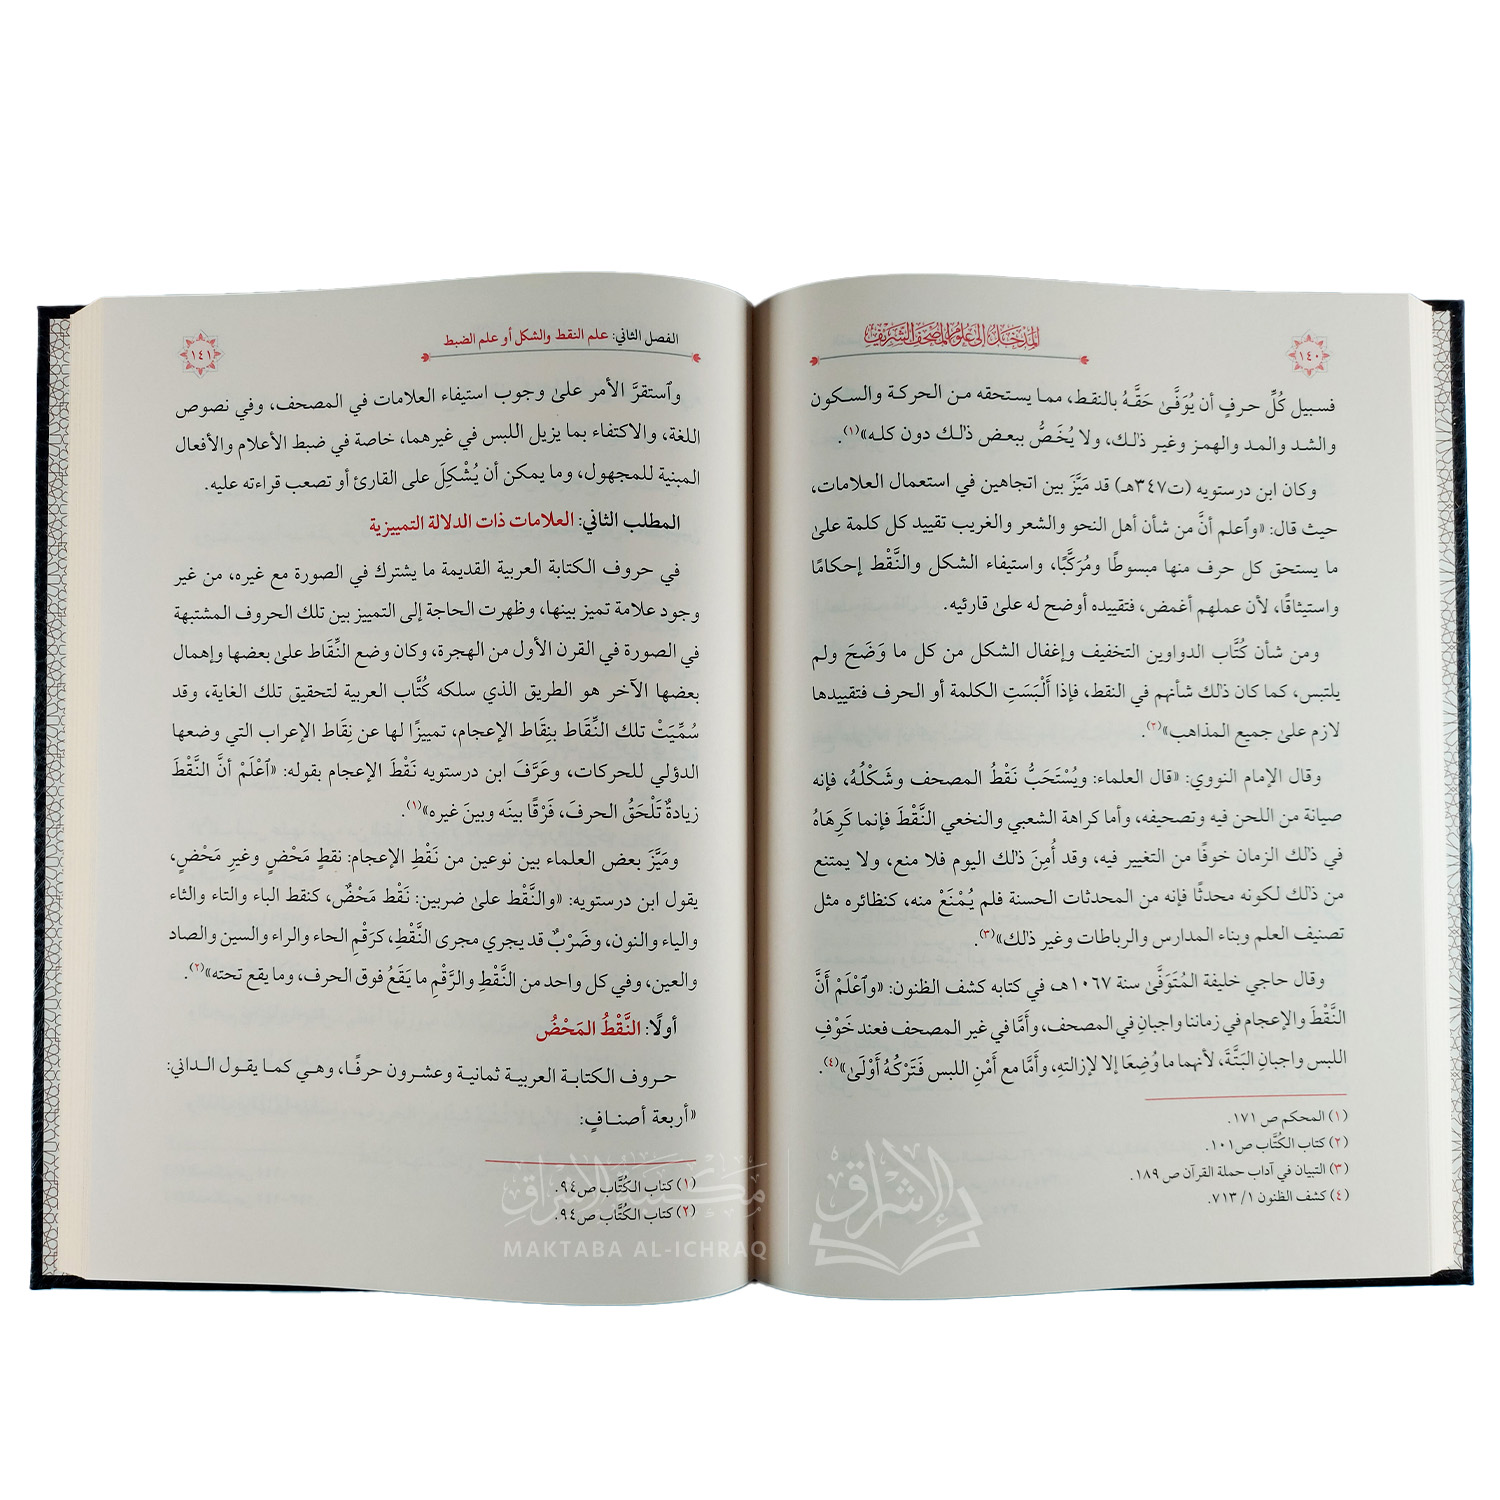 ١٤٠
المدخل إلى علوم المصحف الشريف
فسبيل كُلِّ حرفٍ أن يُوَفَّىٰ حَقَّهُ بالنقط، مما يستحقه من الحركة والسكون
والشد والمد والهمز وغير ذٰلك، ولا يُخَصُّ ببعض ذٰلك دون كله»(١).
وكان ابن درستويه (ت٣٤٧هـ) قد مَيَّزَ بين اتجاهين في استعمال العلامات،
حيث قال: «وٱعلم أنَّ من شأن أهل النحو والشعر والغريب تقييد كل كلمة علىٰ
ما يستحق كل حرف منها مبسوطًا ومُرَكَّبًا، واستيفاء الشكل والنَّقْط إحكامًا
واستيثاقًا، لأن عملهم أغمض، فتقييده أوضح له علىٰ قارئيه.
ومن شأن كُتَّاب الدواوين التخفيف وإغفال الشكل من كل ما وَضَحَ ولم
يلتبس، كما كان ذٰلك شأنهم في النقط، فإذا أَلْبَسَتِ الكلمة أو الحرف فتقييدها
لازم علىٰ جميع المذاهب»(٢).
وقال الإمام النووي: «قال العلماء: ويُسْتَحَبُّ نَقْطُ المصحف وشَكْلُهُ، فإنه
صيانة من اللحن فيه وتصحيفه، وأما كراهة الشعبي والنخعي النَّقْطَ فإنما كَرِهَاهُ
في ذٰلك الزمان خوفًا من التغيير فيه، وقد أُمِنَ ذٰلك اليوم فلا منع، ولا يمتنع
من ذٰلك لكونه محدثًا فإنه من المحدثات الحسنة فلم يُمْنَعْ منه، كنظائره مثل
تصنيف العلم وبناء المدارس والرباطات وغير ذٰلك»(٣).
وقال حاجي خليفة المُتَوَفَّىٰ سنة ١٠٦٧هـ، في كتابه كشف الظنون: «وٱعْلَمْ أَنَّ
النَّقْطَ والإعجام في زماننا واجبانِ في المصحف، وأَمَّا في غير المصحف فعند خَوْفِ
اللبس واجبانِ البَتَّةَ، لأنهما ما وُضِعَا إلا لإزالتهِ، وأَمَّا مع أَمْنِ اللبس فَتَرْكُهُ أَوْلَىٰ»(٤).
(١) المحكم ص ١٧١.
(٢) كتاب الكُتَّاب ص١٠١.
(٣) التبيان في آداب حملة القرآن ص ١٨٩.
(٤) كشف الظنون ١/ ٧١٣.
الفصل الثاني: علم النقط والشكل أو علم الضبط
١٤١
وٱستقرَّ الأمر علىٰ وجوب استيفاء العلامات في المصحف، وفي نصوص
اللغة، والاكتفاء بما يزيل اللبس في غيرهما، خاصة في ضبط الأعلام والأفعال
المبنية للمجهول، وما يمكن أن يُشْكِلَ على القارئ أو تصعب قراءته عليه.
المطلب الثاني: العلامات ذات الدلالة التمييزية
في حروف الكتابة العربية القديمة ما يشترك في الصورة مع غيره، من غير
وجود علامة تميز بينها، وظهرت الحاجة إلى التمييز بين تلك الحروف المشتبهة
في الصورة في القرن الأول من الهجرة، وكان وضع النِّقَاط علىٰ بعضها وإهمال
بعضها الآخر هو الطريق الذي سلكه كُتَّاب العربية لتحقيق تلك الغاية، وقد
سُمِّيَتْ تلك النِّقَاط بنِقَاط الإعجام، تمييزًا لها عن نِقَاط الإعراب التي وضعها
الدؤلي للحركات، وعَرَّفَ ابن درستويه نَقْطَ الإعجام بقوله: «اَعْلَمْ أنَّ النَّقْطَ
زيادةٌ تَلْحَقُ الحرفَ، فَرْقًا بينَه وبينَ غيره»(١).
ومَيَّزَ بعض العلماء بين نوعين من نَقْطِ الإعجام: نقطٍ مَحْضٍ وغيرِ مَحْضٍ،
يقول ابن درستويه: «والنَّقْط علىٰ ضربين: نَقْط مَحْضٌ، كنقط الباء والتاء والثاء
والياء والنون، وضَرْبٌ قد يجري مجرى النَّقْطِ، كرَقْمِ الحاء والراء والسين والصاد
والعين، وفي كل واحد من النَّقْطِ والرَّقْمِ ما يَقَعُ فوق الحرف، وما يقع تحته»(٢).
أولًا: النَّقْطُ المَحْضُ
حروف الكتابة العربية ثمانية وعشرون حرفًا، وهي كما يقول الداني:
«أربعة أصنافٍ:
(١) كتاب الكُتَّاب ص٩٤.
(٢) كتاب الكُتَّاب ص٩٤.
مكتبة الإشراق
MAKTABA AL-ICHRAQ
الإشراق